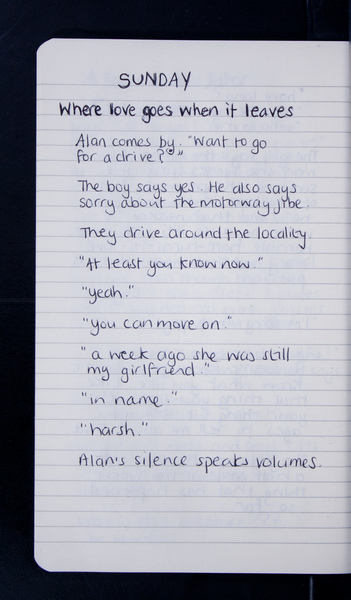 SUNDAY
Where love goes when it leaves
Alan comes by. "Want to go
for a drive?"
The boy says yes. He also says
sorry about the motorway jibe.
They drive around the locality.
"At least you know now."
"yeah."
"you can move on."
"a week ago she was still
my girlfriend."
"in name."
"harsh."
Alan's silence speaks volumes.